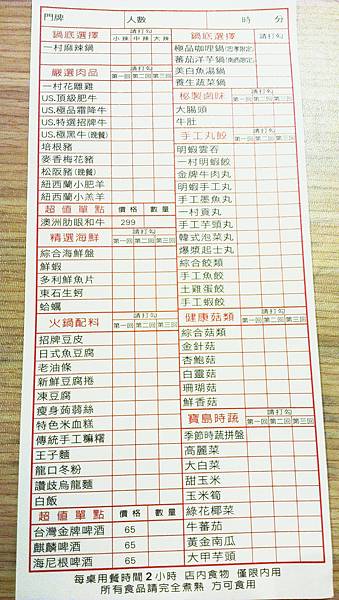 門牌 人數 時 分
鍋底選擇 請打勾
小辣 中辣 大辣
一村麻辣鍋
嚴選肉品 請打勾
第一回 第二回 第三回
一村花雕雞
US.頂級肥牛
US.極品霜降牛
US.特選招牌牛
US.極黑牛(晚餐)
培根豬
麥香梅花豬
松阪豬(晚餐)
紐西蘭小肥羊
紐西蘭小羔羊
超值單點 價格 數量
澳洲肋眼和牛 299
精選海鮮 請打勾
第一回 第二回 第三回
綜合海鮮盤
鮮蝦
多利鮮魚片
東石生蚵
蛤蠣
火鍋配料 請打勾
第一回 第二回 第三回
招牌豆皮
日式魚豆腐
老油條
新鮮豆腐捲
凍豆腐
瘦身蒟蒻絲
特色米血糕
傳統手工麻糬
王子麵
龍口冬粉
讚歧烏龍麵
白飯
超值單點 價格 數量
台灣金牌啤酒 65
麒麟啤酒 65
海尼根啤酒 65
鍋底選擇 請打勾
極品咖哩鍋
蕃茄洋芋鍋
美白魚湯鍋
養生蔬菜鍋
秘製滷味 請打勾
第一回 第二回 第三回
大腸頭
牛肚
手工丸餃 請打勾
第一回 第二回 第三回
明蝦雲吞
一村明蝦餃
金牌牛肉丸
明蝦手工丸
手工墨魚丸
一村貢丸
手工芋頭丸
韓式泡菜丸
爆漿起士丸
綜合餃類
手工魚餃
土雞蛋餃
手工蝦餃
健康菇類 請打勾
第一回 第二回 第三回
綜合菇類
金針菇
杏鮑菇
白靈菇
珊瑚菇
鮮香菇
寶島時蔬 請打勾
第一回 第二回 第三回
季節時蔬拼盤
高麗菜
大白菜
甜玉米
玉米筍
綠花椰菜
牛蕃茄
黃金南瓜
大甲芋頭
每桌用餐時間2小時 店內食物 僅限內用
所有食品請完全煮熟 方可食用